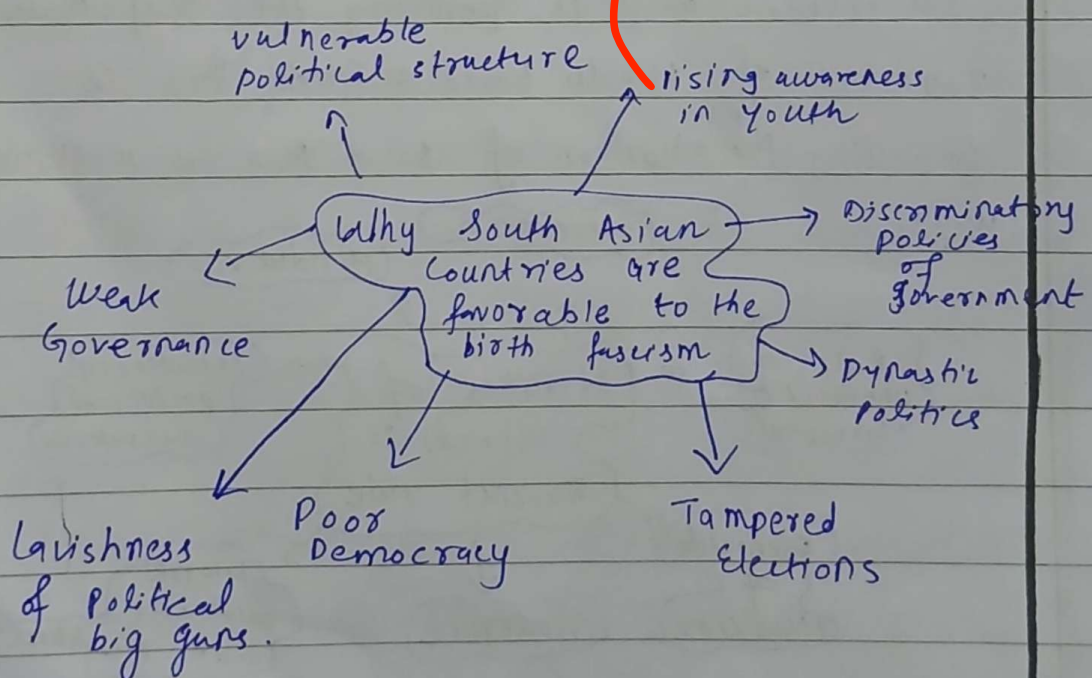 vulnerable
political structure
rising awareness
in youth
Why South Asian
Countries are
favorable to the
birth fascism
Discriminatory
policies
of
government
Weak
Governance
Dynastic
Politics
Lavishness
of political
big guns.
Poor
Democracy
Tampered
Elections